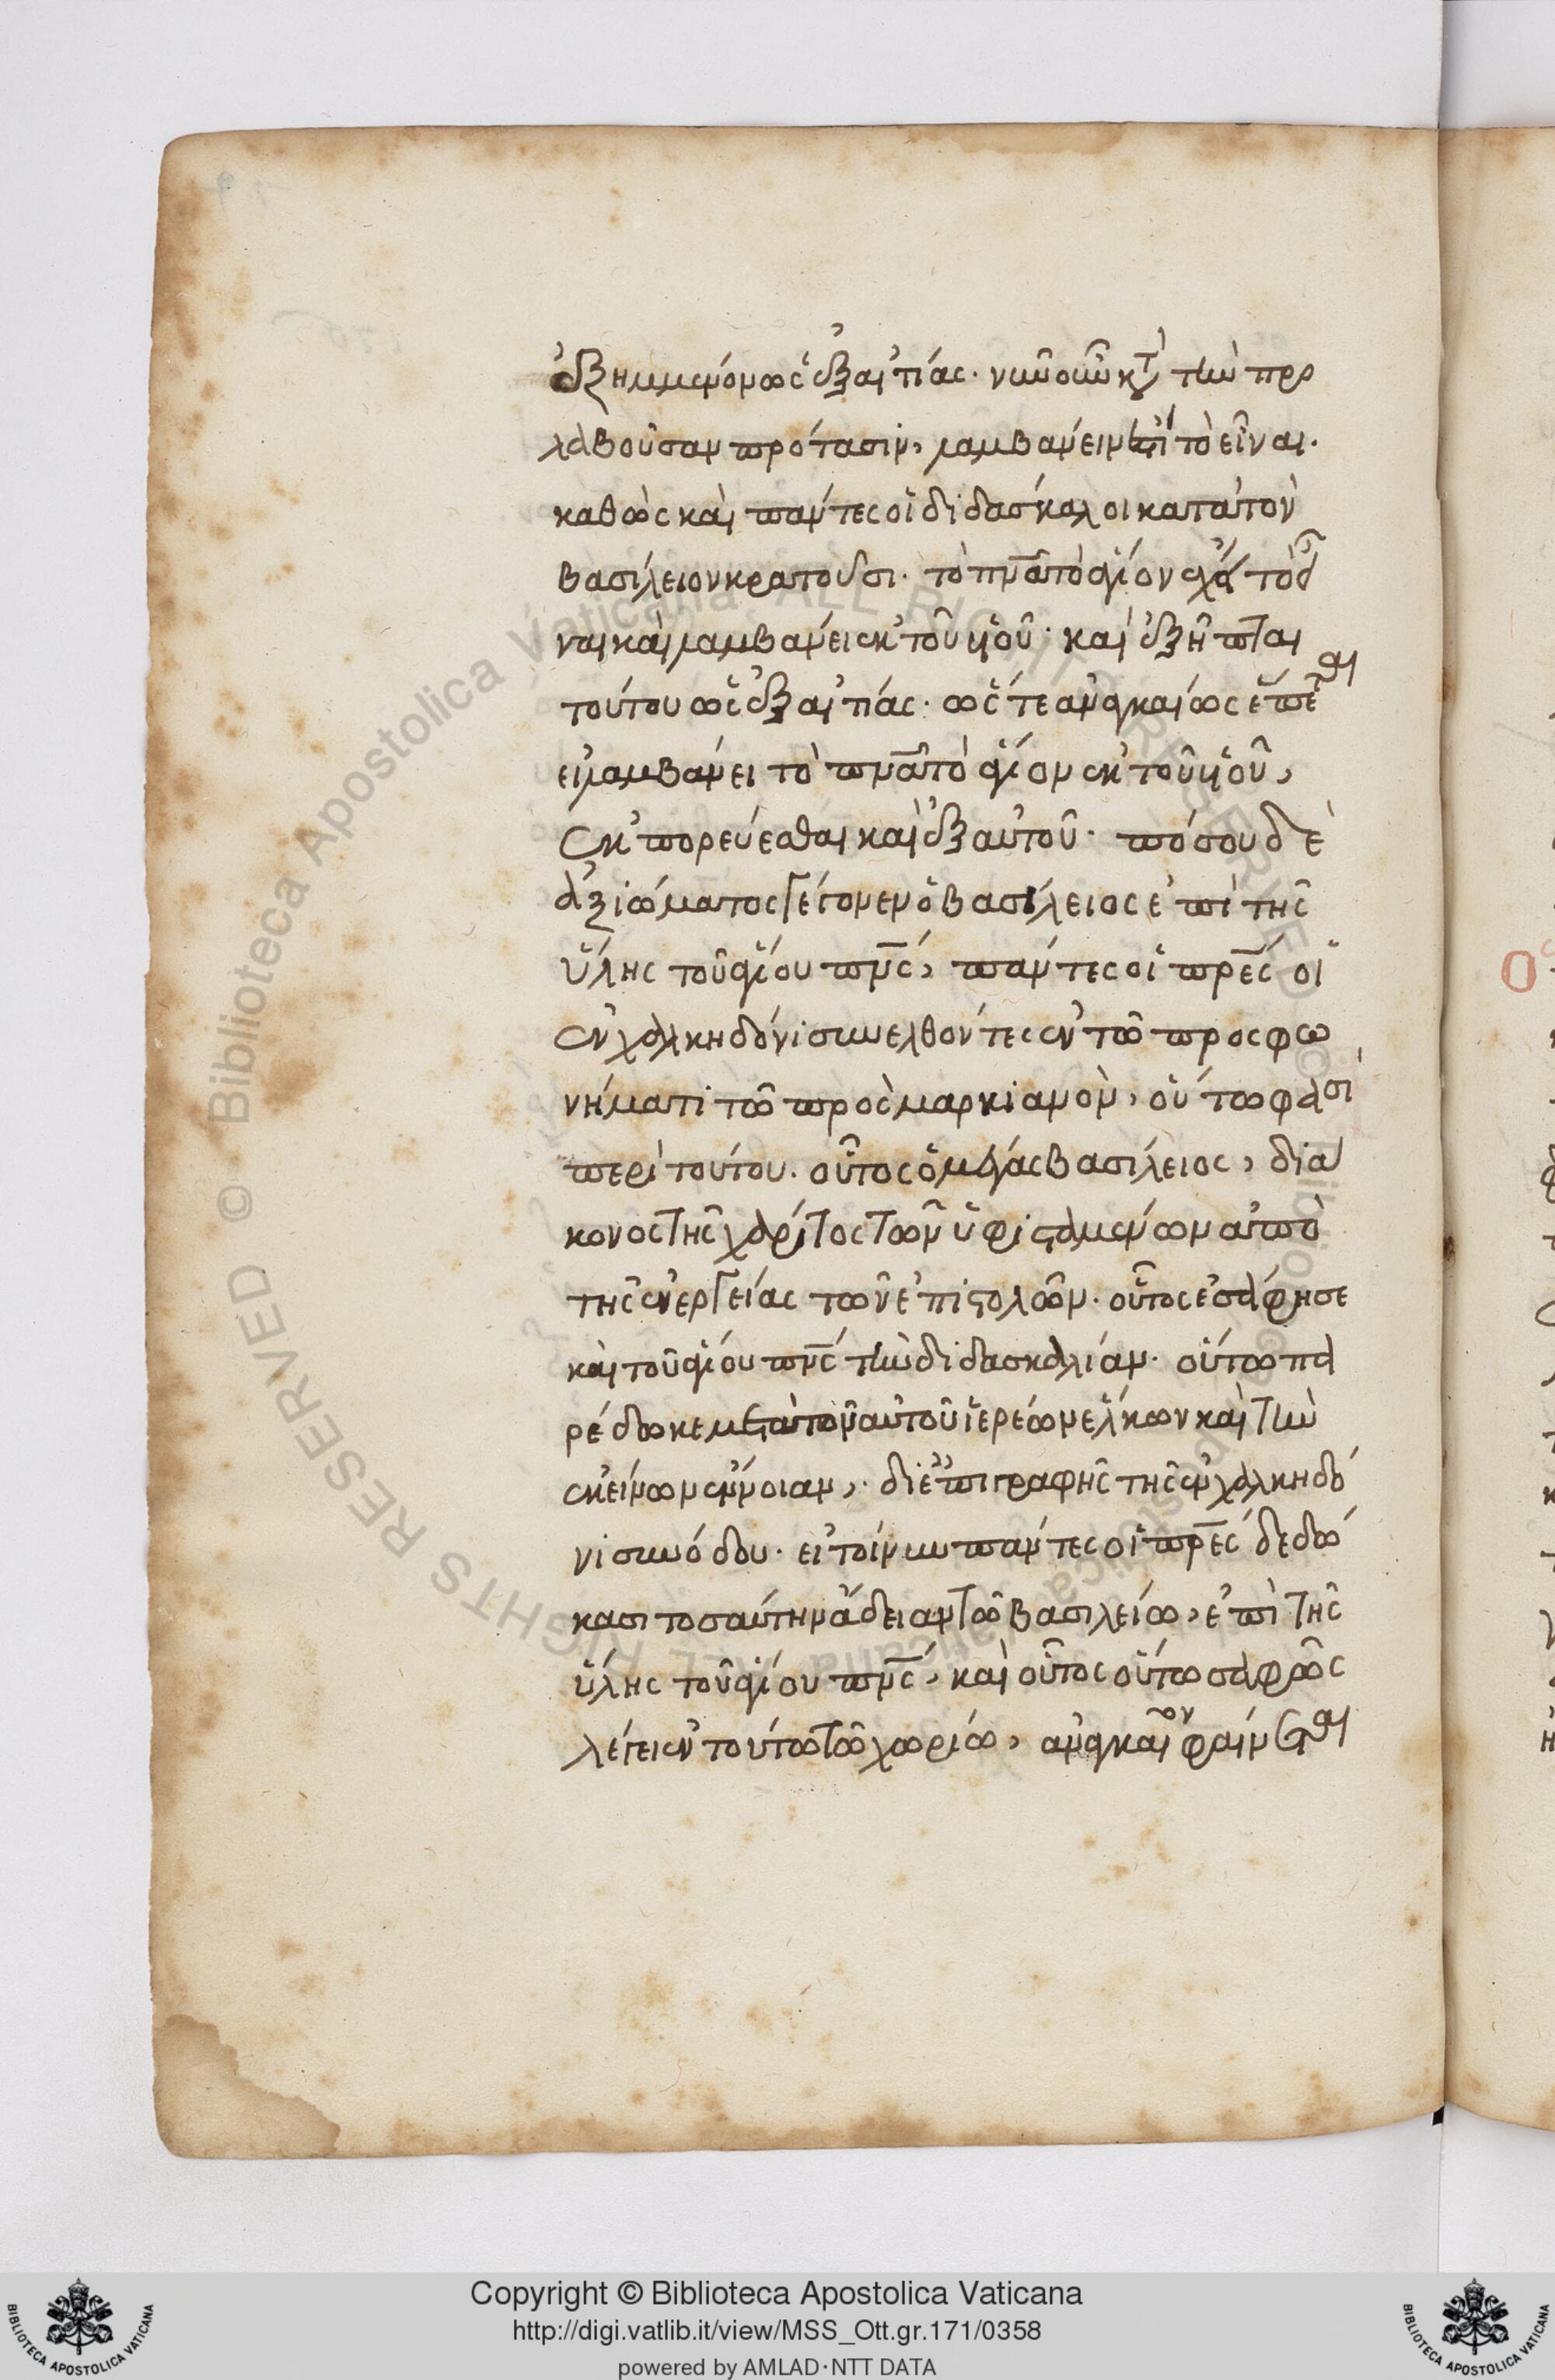 ἐξημμένον ὡς ἐξ αἰτίας. νῦν οὖν κατὰ τὴν προ
λαβοῦσαν πρότασιν, λαμβάνειν ἐστὶ τὸ εἶναι.
καθὼς καὶ πάντες οἱ διδάσκαλοι κατὰ τὸν
βασίλειον κρατοῦσι. τὸ πνᾶ τὸ ἅγιον ἄρα τὸ εἶ
ναι καὶ λαμβάνει ἐκ τοῦ υἱοῦ. καὶ ἐξῆπται
τούτου ὡς ἐξ αἰτίας. ὥστε ἀναγκαίως ἕπεται
εἰ λαμβάνει τὸ πνᾶ τὸ ἅγιον ἐκ τοῦ υἱοῦ,
ἐκπορεύεσθαι καὶ ἐξ αὐτοῦ. πόσου δὲ
ἀξιώματος γέγονεν ὁ βασίλειος ἐπὶ τῆς
ὕλης τοῦ ἁγίου πνς, πάντες οἱ πρες οἱ
ἐν χαλκηδόνι συνελθόντες ἐν τῶ προσφω
νήματι τῶ πρὸς μαρκιανὸν, οὕτω φασὶ
περὶ τούτου. οὗτος ὁ μέγας βασίλειος, διά
κονος τῆς χάριτος τῶν ὑφισταμένων ἀπὸ
τῆς ἐνεργείας τῶν ἐπιστολῶν. οὗτος ἐσάφησε
καὶ τοῦ ἁγίου πνς τὴν διδασκαλίαν. οὕτω πα
ρέδωκε μετὰ τὸν αὐτοῦ ἱερέων ἕλκων καὶ τὴν
ἐκείνων ἔννοιαν, δι' ἐπιγραφῆς τῆς ἐν χαλκηδό
νι συνόδου. εἰ τοίνυν πάντες οἱ πρες δεδώ
κασι τοσαύτην ἄδειαν τῶ βασιλείω, ἐπὶ τῆς
ὕλης τοῦ ἁγίου πνς, καὶ οὗτος οὕτω σαφῶς
λέγει ἐν τούτω τῶ χωρίω, ἀναγκαῖον φαίνεται